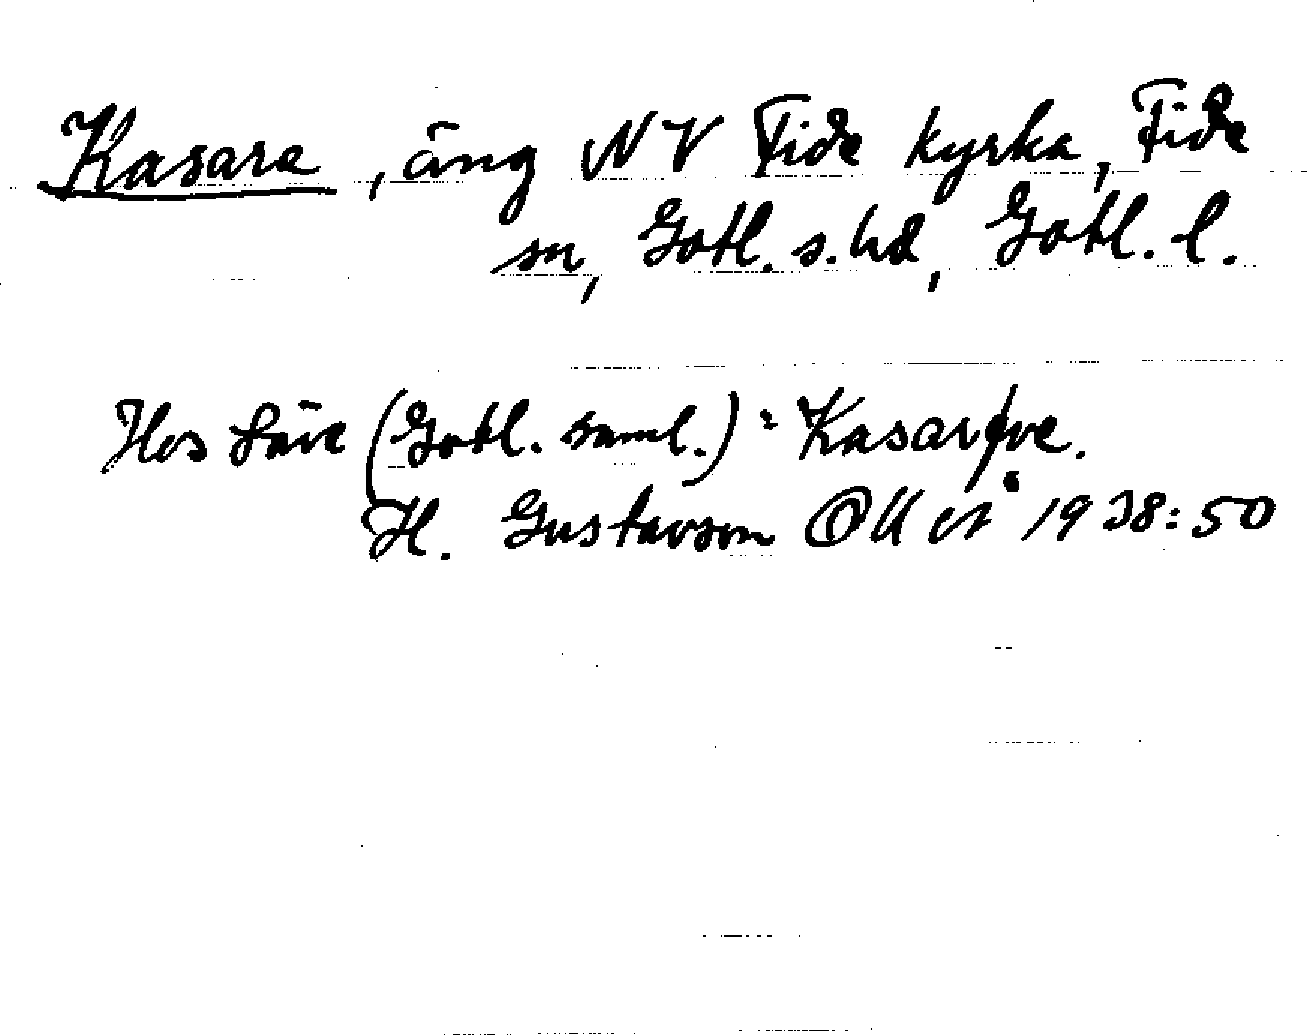 Kasara, äng NV Fide kyrka, Fide
sn, Gotl. s. hd, Gotl. l.
Hos Säve (Gotl. saml.): Kasarfve.
H. Gustavson 1938:50